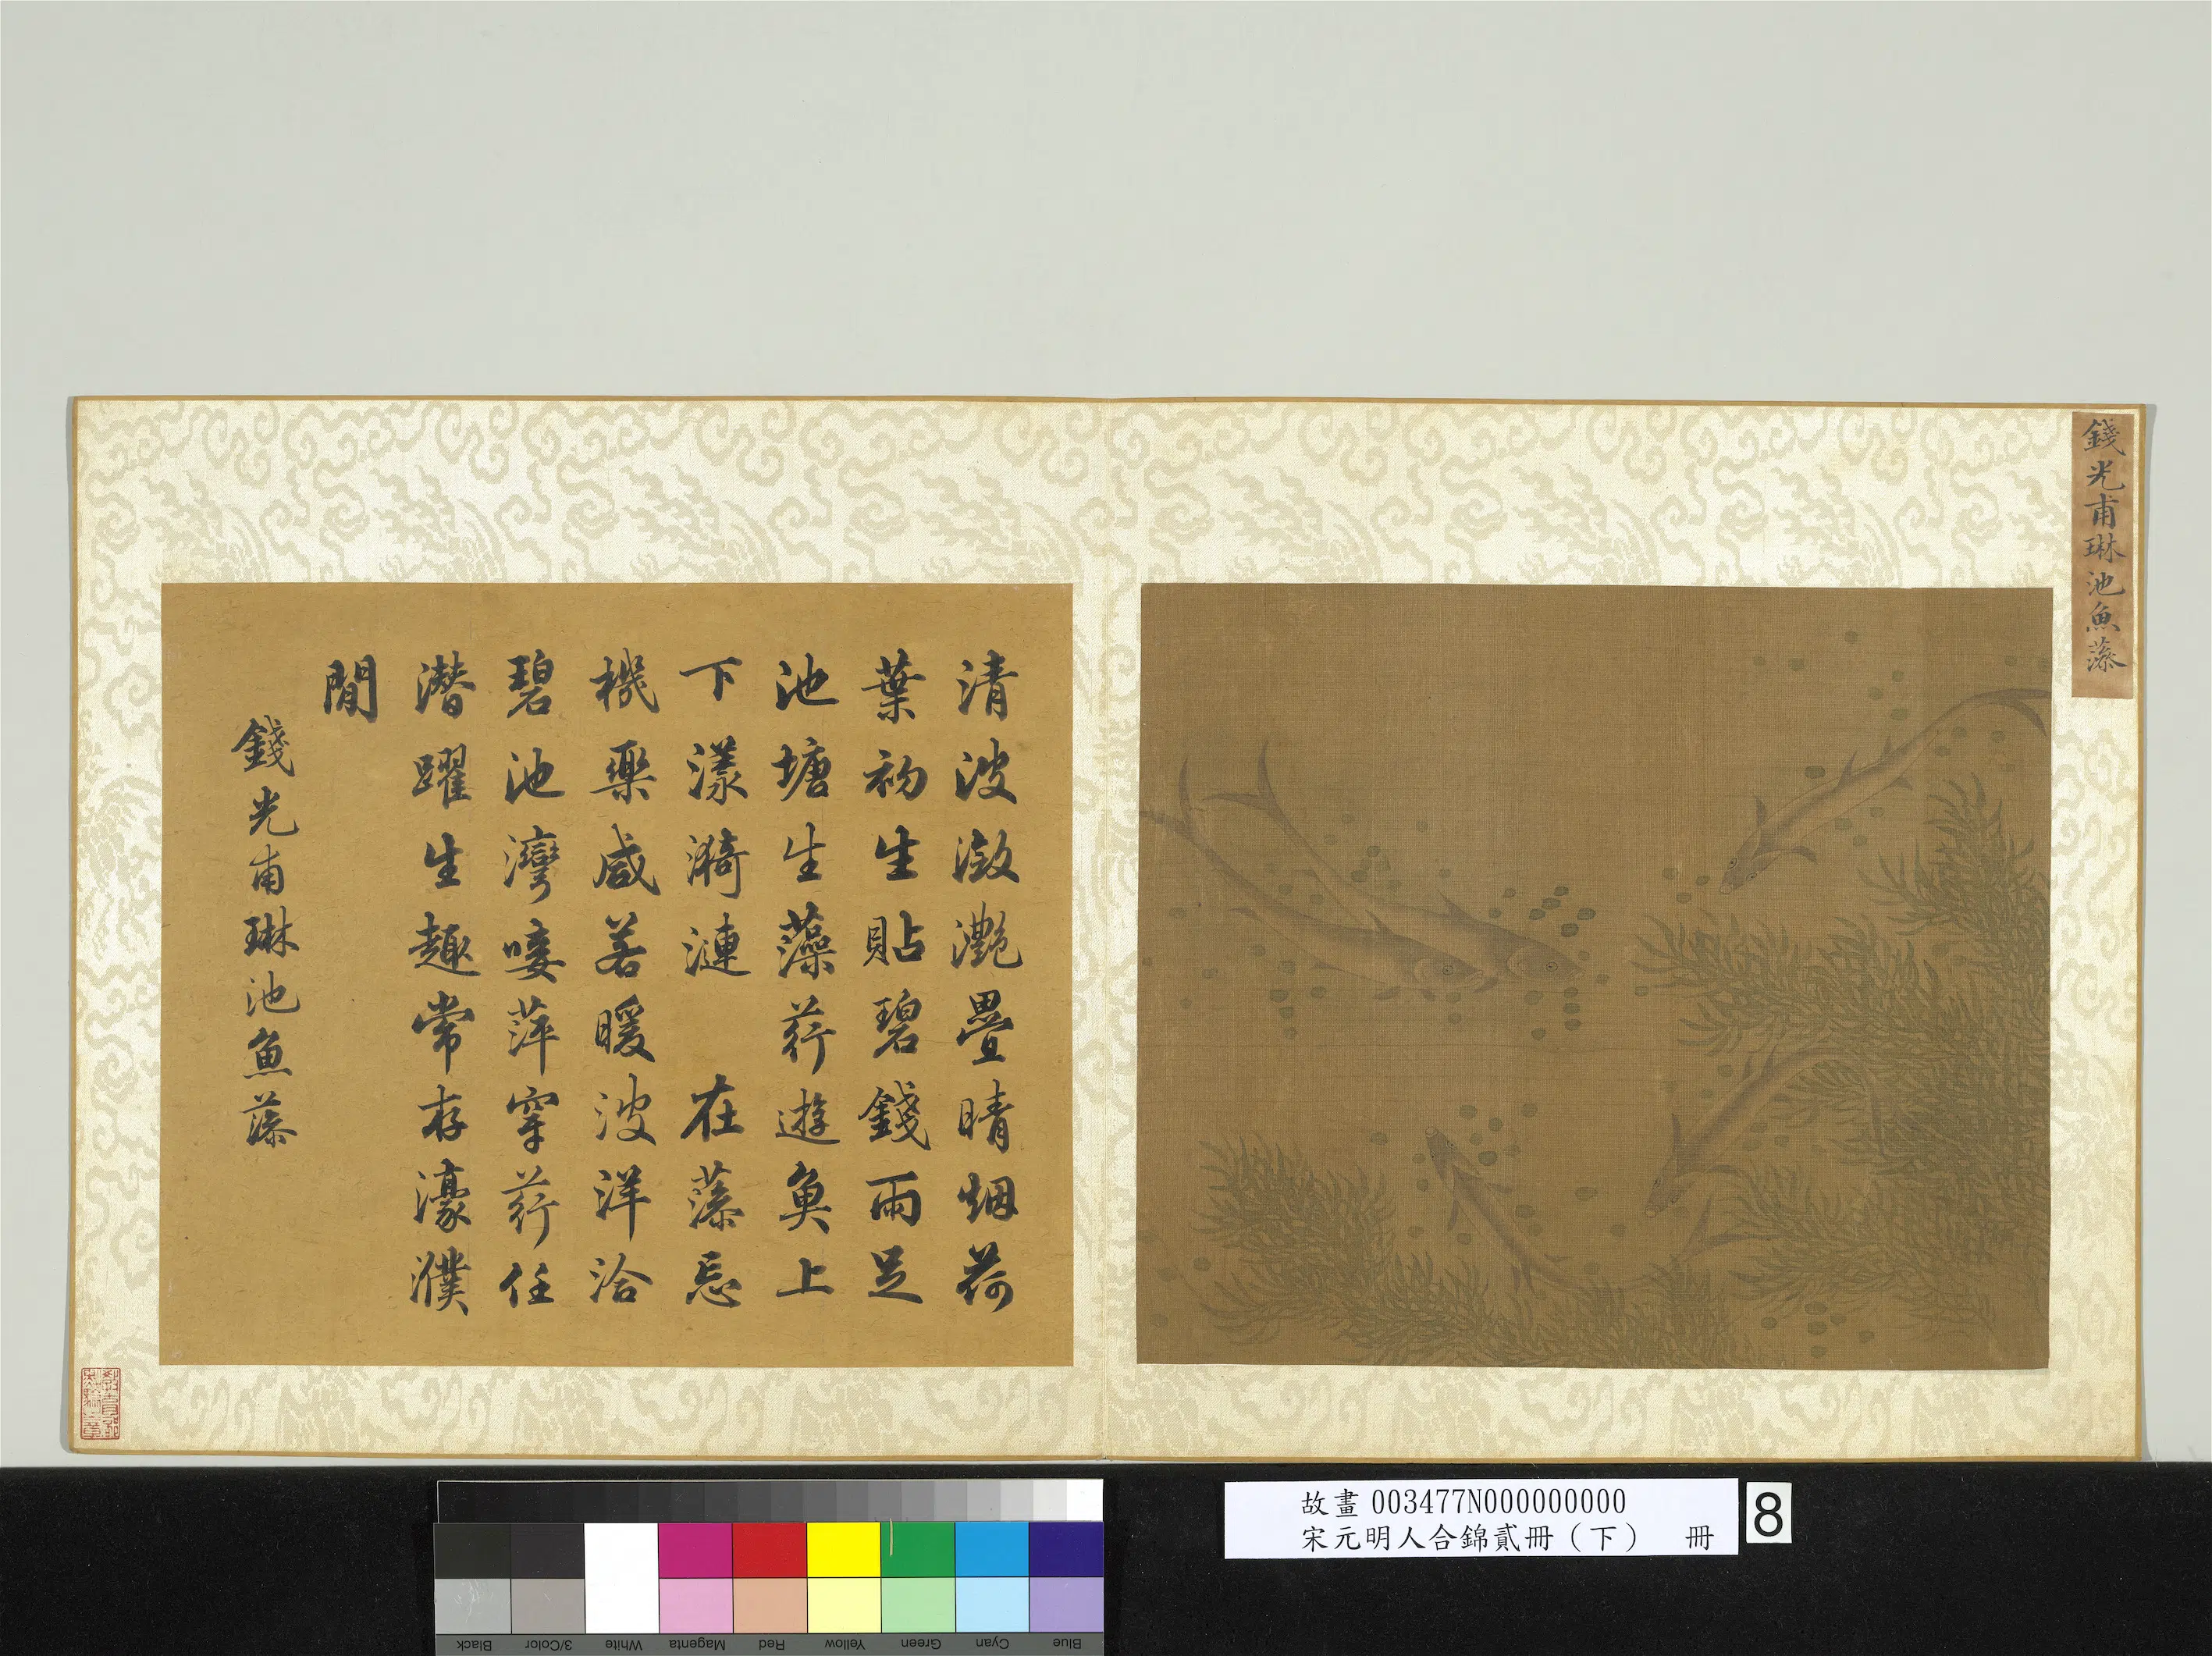 錢光甫琳池魚藻
清波瀲灧疊晴烟荷
葉初生貼碧錢雨足
池塘生藻荇遊魚上
下漾漪漣 在藻忘
機樂咸若暖波洋洽
碧池灣唼萍穿荇任
潛躍生趣常存濠濮
間
錢光甫琳池魚藻
故畫 003477N000000000
宋元明人合錦貳冊(下) 冊
8
Black
3/Color
White
Magenta
Red
Yellow
Green
Cyan
Blue